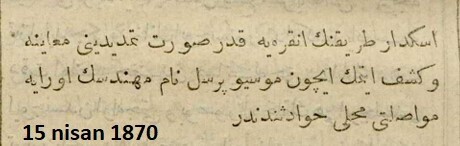 اسكدار طريقنك انقره‌يه قدر صورت تمديدينى معاينه
وكشف ايتمك ايچون موسيو پرسل نام مهندسك اورايه
مواصلتى محلى حوادثندندر
15 nisan 1870